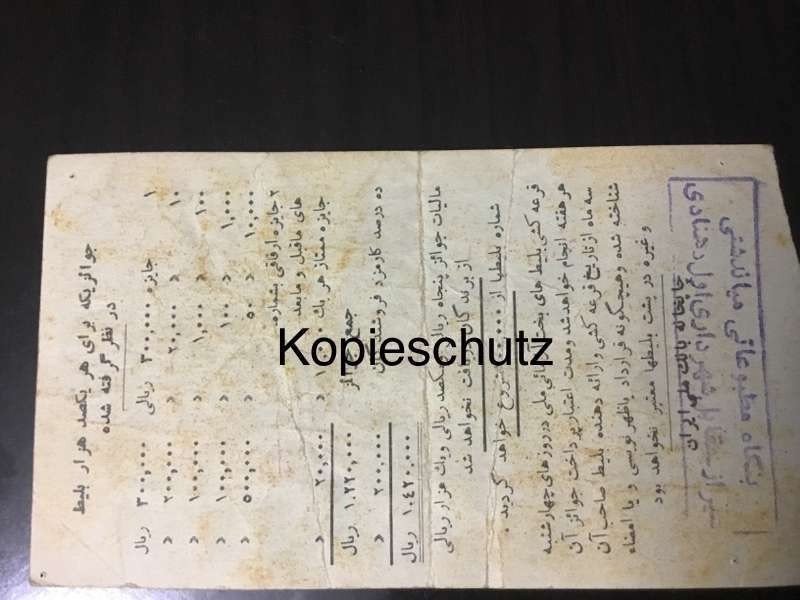 جوائزیکه برای هر یکصد هزار بلیط
در نظر گرفته شده
۱ جایزه ۳۰۰,۰۰۰ ریالی ۳۰۰,۰۰۰ ریال
۱۰ » ۲۰,۰۰۰ » ۲۰۰,۰۰۰ »
۱۰۰ » ۱,۰۰۰ » ۱۰۰,۰۰۰ »
۱,۰۰۰ » ۱۰۰ » ۱۰۰,۰۰۰ »
۱۰,۰۰۰ » ۵۰ » ۵۰۰,۰۰۰ »
۲ جایزه ارفاقی بشماره
های ماقبل و مابعد
جایزه ممتاز هر یک » ۲۰,۰۰۰ »
جمع ۱,۲۲۰,۰۰۰ ریال
ده درصد کارمزد ۲۰۰,۰۰۰ »
۱,۴۲۰,۰۰۰ ریال
مالیات جوائز پنجاه ریالی یکصد ریالی و یک هزار ریالی
از برندگان نخواهد شد
شماره بلیطها از شروع خواهد گردید .
قرعه کشی بلیط های بخت آزمائی ملی در روزهای چهارشنبه
هر هفته انجام خواهد شد و مدت اعتبار پرداخت جوائز آن
سه ماه از تاریخ قرعه کشی و ارائه دهنده بلیط صاحب آن
شناخته شده و هیچگونه قرارداد یا ظهر نویسی و یا امضاء
و غیره در پشت بلیطها معتبر نخواهد بود
ایران
بنگاه مطبوعاتی میاندشتی
شیراز مقابل شهرداری اول
Kopieschutz